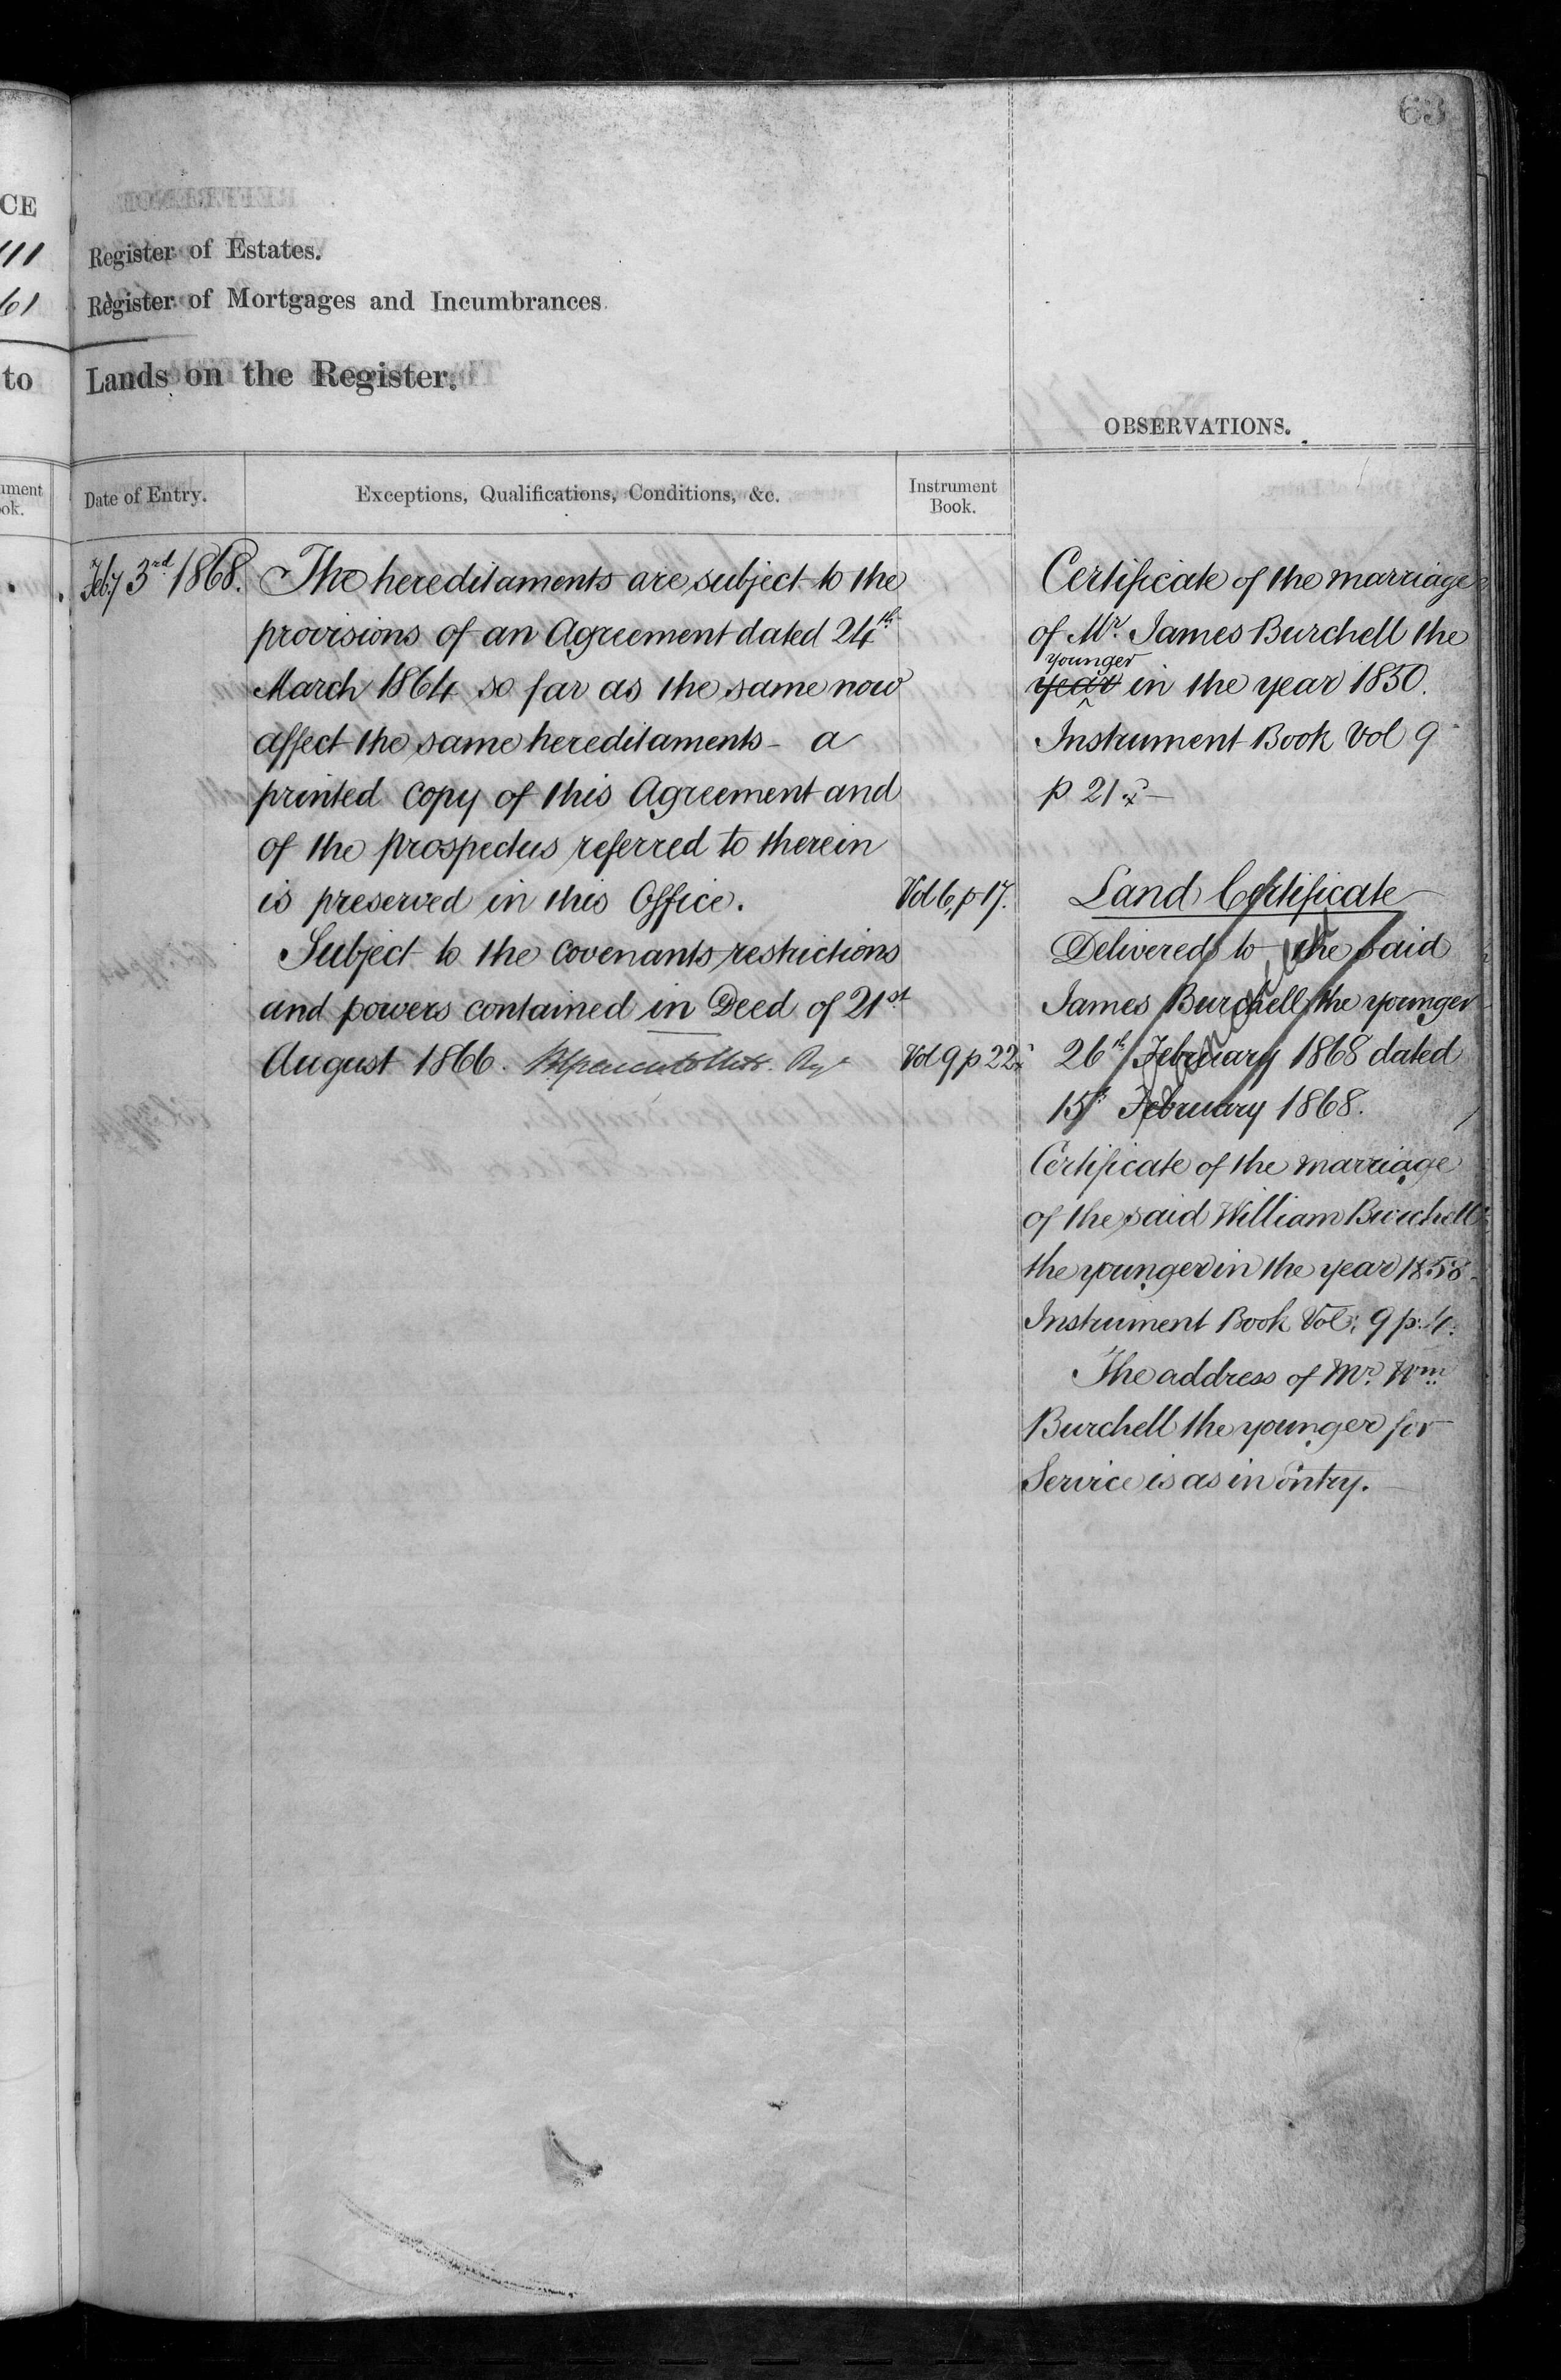 63
CE
111
61
to
Register of Estates.
Register of Mortgages and Incumbrances
Lands on the Register.
OBSERVATIONS.
ument
ok.
Date of Entry.
Exceptions, Qualifications, Conditions, &c.
Instrument
Book.
Feby 3rd 1868.
The hereditaments are subject to the
provisions of an Agreement dated 24th
March 1864 so far as the same now
affect the same hereditaments - a
printed copy of this Agreement and
of the prospectus referred to therein
is preserved in this Office.
Vol 6, p 17.
Subject to the covenants restrictions
and powers contained in Deed of 21st
August 1866.
Vol 9 p 22
Certificate of the marriage
of Mr. James Burchell the
younger
year in the year 1850.
Instrument Book Vol 9
p 21
Land Certificate
Delivered to the said
James Burchell the younger
26th February 1868 dated
15th February 1868.
Certificate of the marriage
of the said William Burchell
the younger in the year 1858
Instrument Book Vol: 9 p. 4.
The address of Mr. Wm.
Burchell the younger for
Service is as in entry.